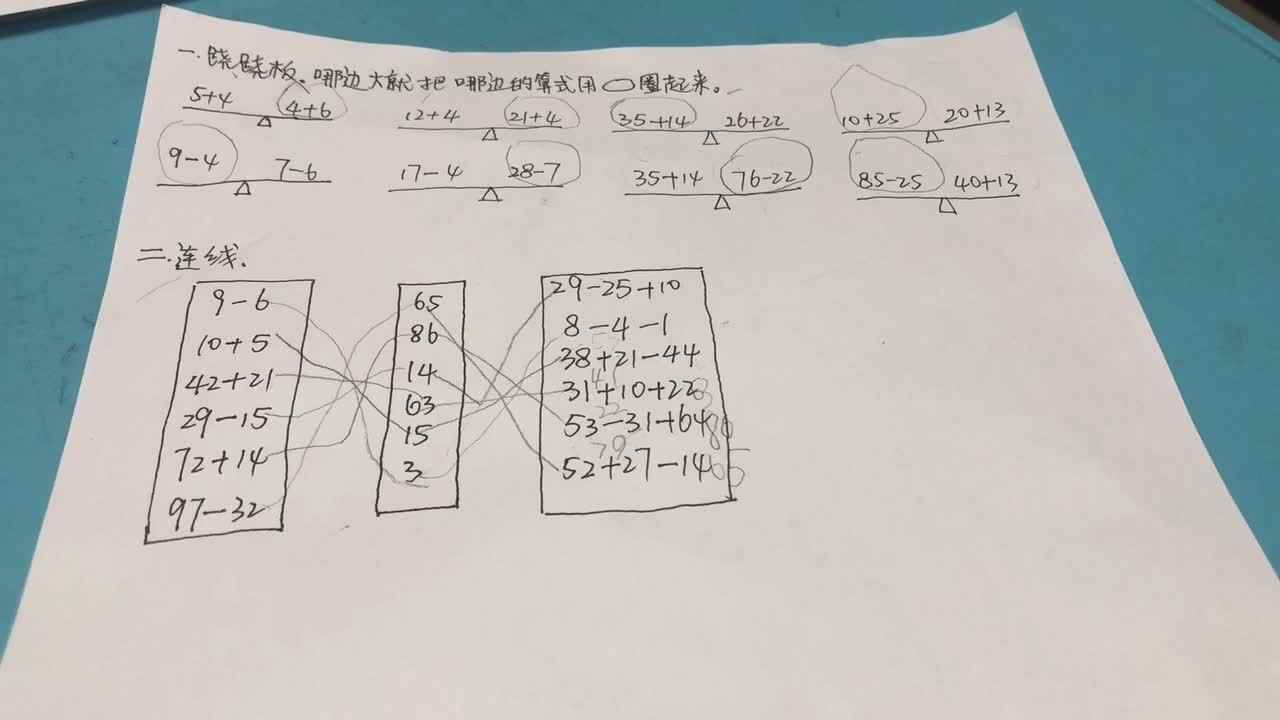 一.跷跷板。哪边大就把哪边的算式用○圈起来。
5+4 4+6 12+4 21+4 35+14 26+22 10+25 20+13
9-4 7-6 17-4 28-7 35+14 76-22 85-25 40+13
二.连线.
9-6 65 29-25+10
10+5 86 8-4-1
42+21 14 38+21-44
29-15 63 31+10+22
72+14 15 53-31+64
97-32 3 52+27-14